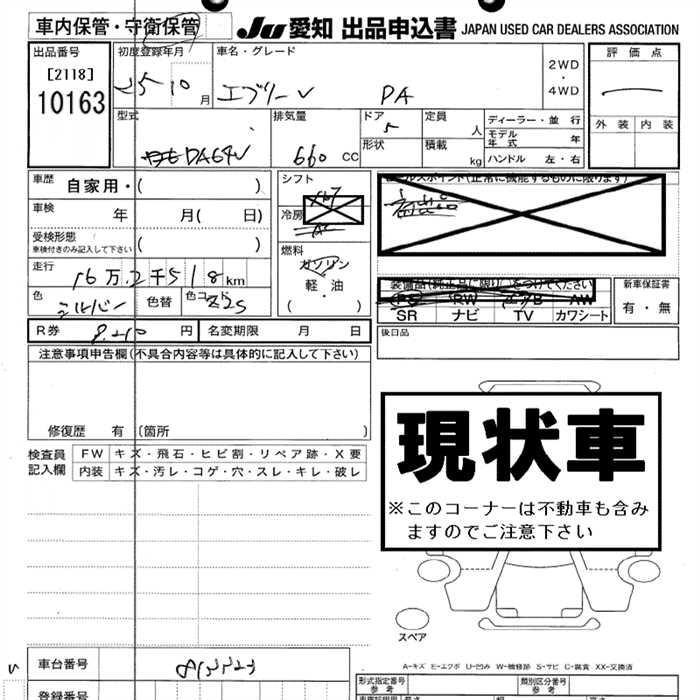 車内保管・守衛保管
JU 愛知 出品申込書 JAPAN USED CAR DEALERS ASSOCIATION
出品番号
[2118]
10163
初度登録年月
25 10 月
車名・グレード
エブリーV PA
2WD
・
4WD
評価点
外装 内装
型式
DA64V
排気量
660 CC
ドア
5
形状
定員
人
積載
kg
ディーラー・並行
モデル年式 年
ハンドル 左・右
車歴 自家用・( )
車検 年 月( 日)
受検形態
車検付きのみ記入して下さい ( )
走行 16万2千518km
色 シルバー 色替 色コード Z2S
シフト
冷房
AC
燃料
ガソリン
軽・油
( )
セールスポイント(正常に機能するものに限ります)
装備品(純正品に限り○をつけてください)
PS RW エアB AW
SR ナビ TV カワシート
新車保証書
有・無
R券 8,210 円 名変期限 月 日
後日品
注意事項申告欄(不具合内容等は具体的に記入して下さい)
修復歴 有 (箇所 )
検査員
記入欄
FW キズ・飛石・ヒビ割・リペア跡・X要
内装 キズ・汚レ・コゲ・穴・スレ・キレ・破レ
現状車
※このコーナーは不動車も含み
ますのでご注意下さい
スペア
A-キズ E-エクボ U-凹み W-補修跡 S-サビ C-腐食 XX-交換済
車台番号
登録番号
形式指定番号
参考
類別区分番号
参考